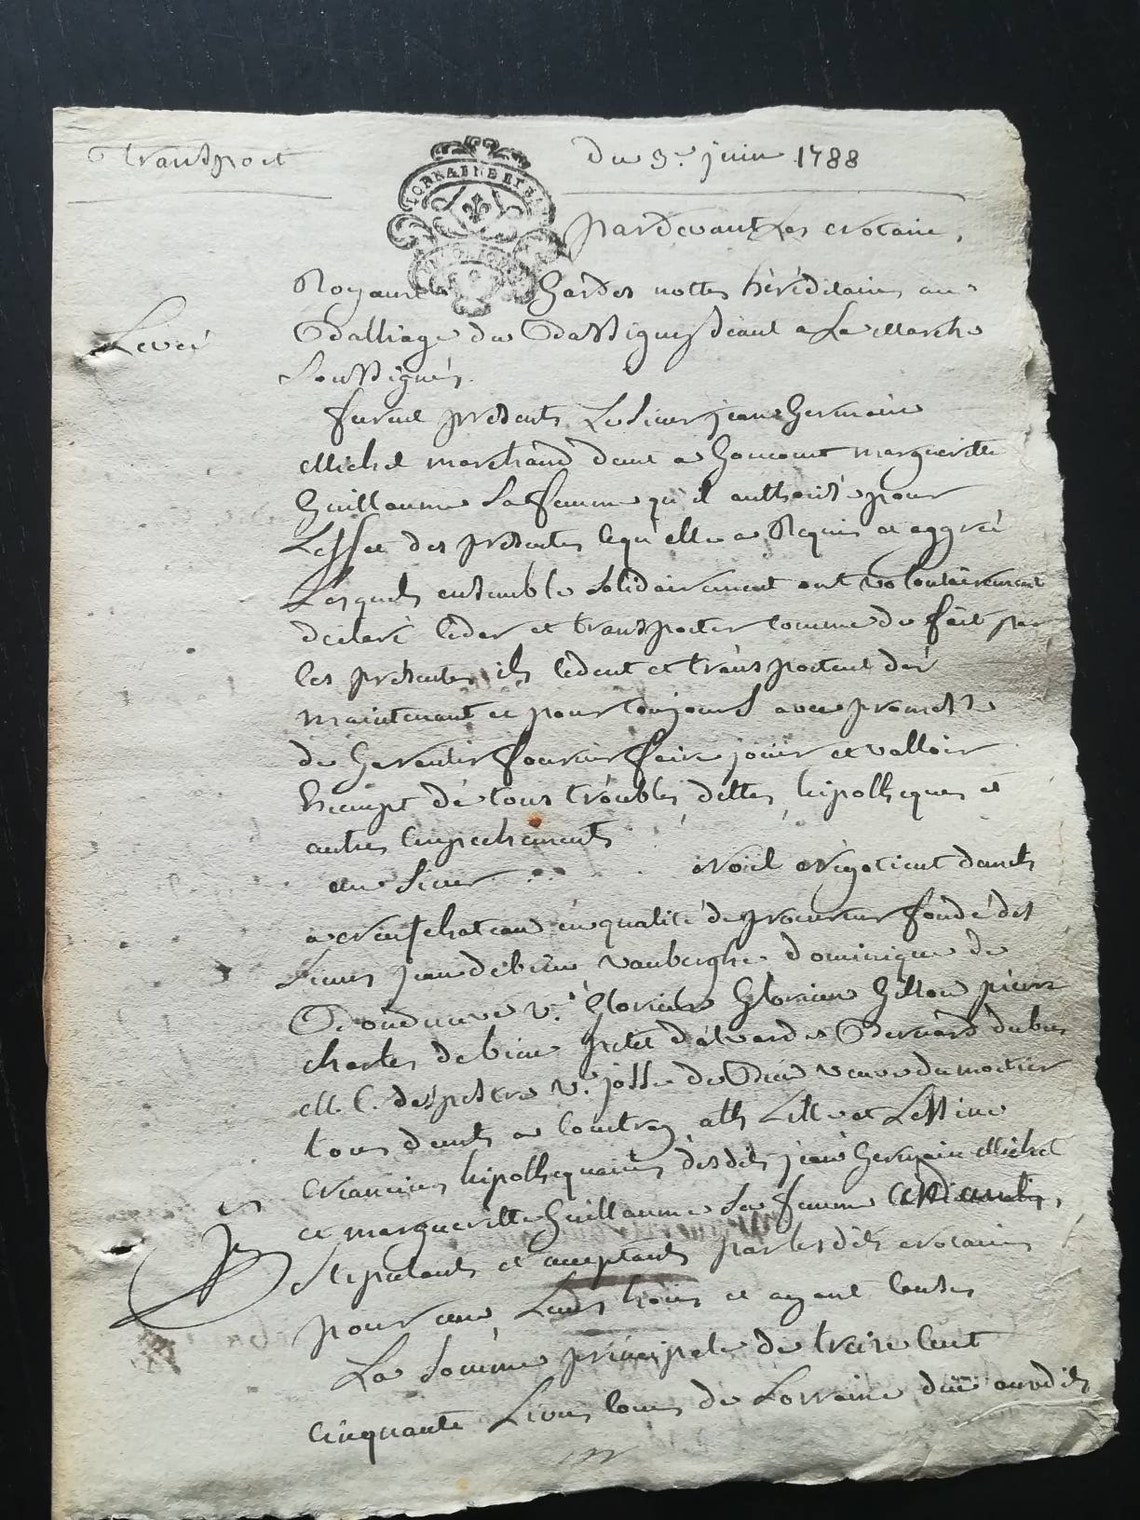 Transport
Du 3e. juin 1788
LORRAINE ET B
pardevant Les Notaires
Royaux Gardes nottes héréditaires au
Balliage du Bassigny séant a La Marche
Soussignés.
Levée
furent présents Le Sieur jean Germain
Michel marchand demt a Goncourt margueritte
Guillaume Sa femme qu'il authorise pour
L'effet des présentes lequ'elle a Requis et aggréé
Lesquels ensemble solidairement ont volontairement
déclaré céder et transporter comme de fait par
ces présentes ils cèdent et transportent dès
maintenant et pour toujours avec promesse
de Garentir fournir faire jouir et valloir
Exempt de tous troubles dettes hipothèques et
autres Empechements
au Sieur Noël Négotiant demt
a Neufchateau en qualité de procureur fondé des
Sieurs jean debien vanberghe dominique de
Ve. Glorieux Gilton pierre
charles debien petit Bernard dubus
M. C. despestre Ve. josse de veuve dumortier
tous demts a Courtray ath Lille et Lessine
Créanciers hipothéquaires desdits jean Germain Michel
et margueritte Guillaume Sa femme
Stipulants et acceptants par lesdits Notaires
pour eux Leurs hoirs et ayant Causes
La Somme principale de treize Cent
Cinquante Livres Cours de Lorraine due auxdits